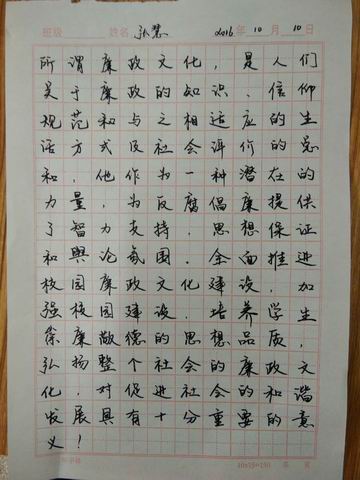 班级 姓名 弘慧 2016年 10月 10日
所谓廉政文化，是人们
关于廉政的知识、信仰
规范和与之相适应的生
活方式及社会评价的总
和，他作为一种潜在的
力量，为反腐倡廉提供
了智力支持，思想保证
和舆论氛围。全面推进
校园廉政文化建设，加
强校园建设，培养学生
崇廉敬德的思想品质，
弘扬整个社会的廉政文
化，对促进社会的和谐
发展具有十分重要的意
义！
第 页